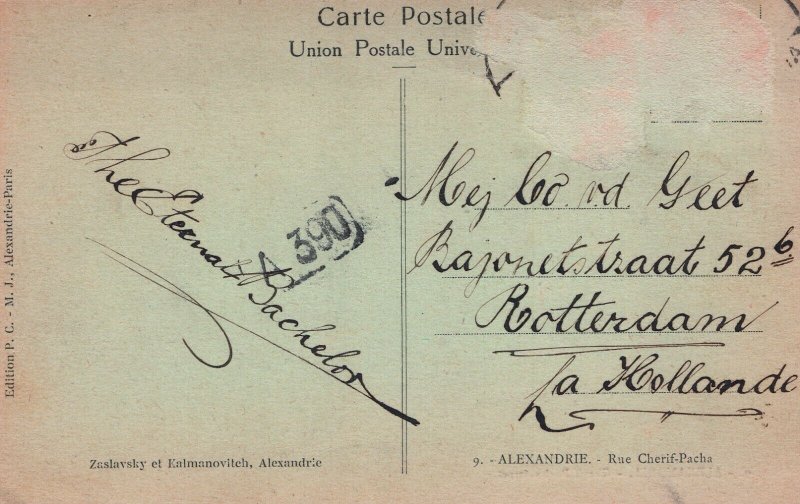 Carte Postale
Union Postale Unive
Edition P. C. - M. J., Alexandrie-Paris
The Eternal Bachelor
390
Mej Co. vd. Geet
Bajonetstraat 52b
Rotterdam
La Hollande
Zaslavsky et Kalmanovitch, Alexandrie
9. - ALEXANDRIE. - Rue Cherif-Pacha